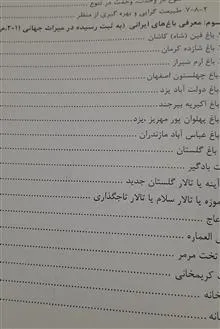 ۲-۸-۷. طبیعت گرایی و بهره گیری از منظر
سوم: معرفی باغ‌های ایرانی (به ثبت رسیده در میراث جهانی ۲۰۱۱م
باغ فین (شاه) کاشان
باغ شازده کرمان
باغ ارم شیراز
باغ چهلستون اصفهان
باغ دولت آباد یزد
باغ اکبریه بیرجند
باغ پهلوان پور مهریز ،یزد
باغ عباس آباد مازندران
باغ گلستان
ت بادگیر
آینه یا تالار گلستان جدید
موزه یا تالار سلام یا تالار تاجگذاری
عاج
العماره
تخت مرمر
کریمخانی
خانه
انه